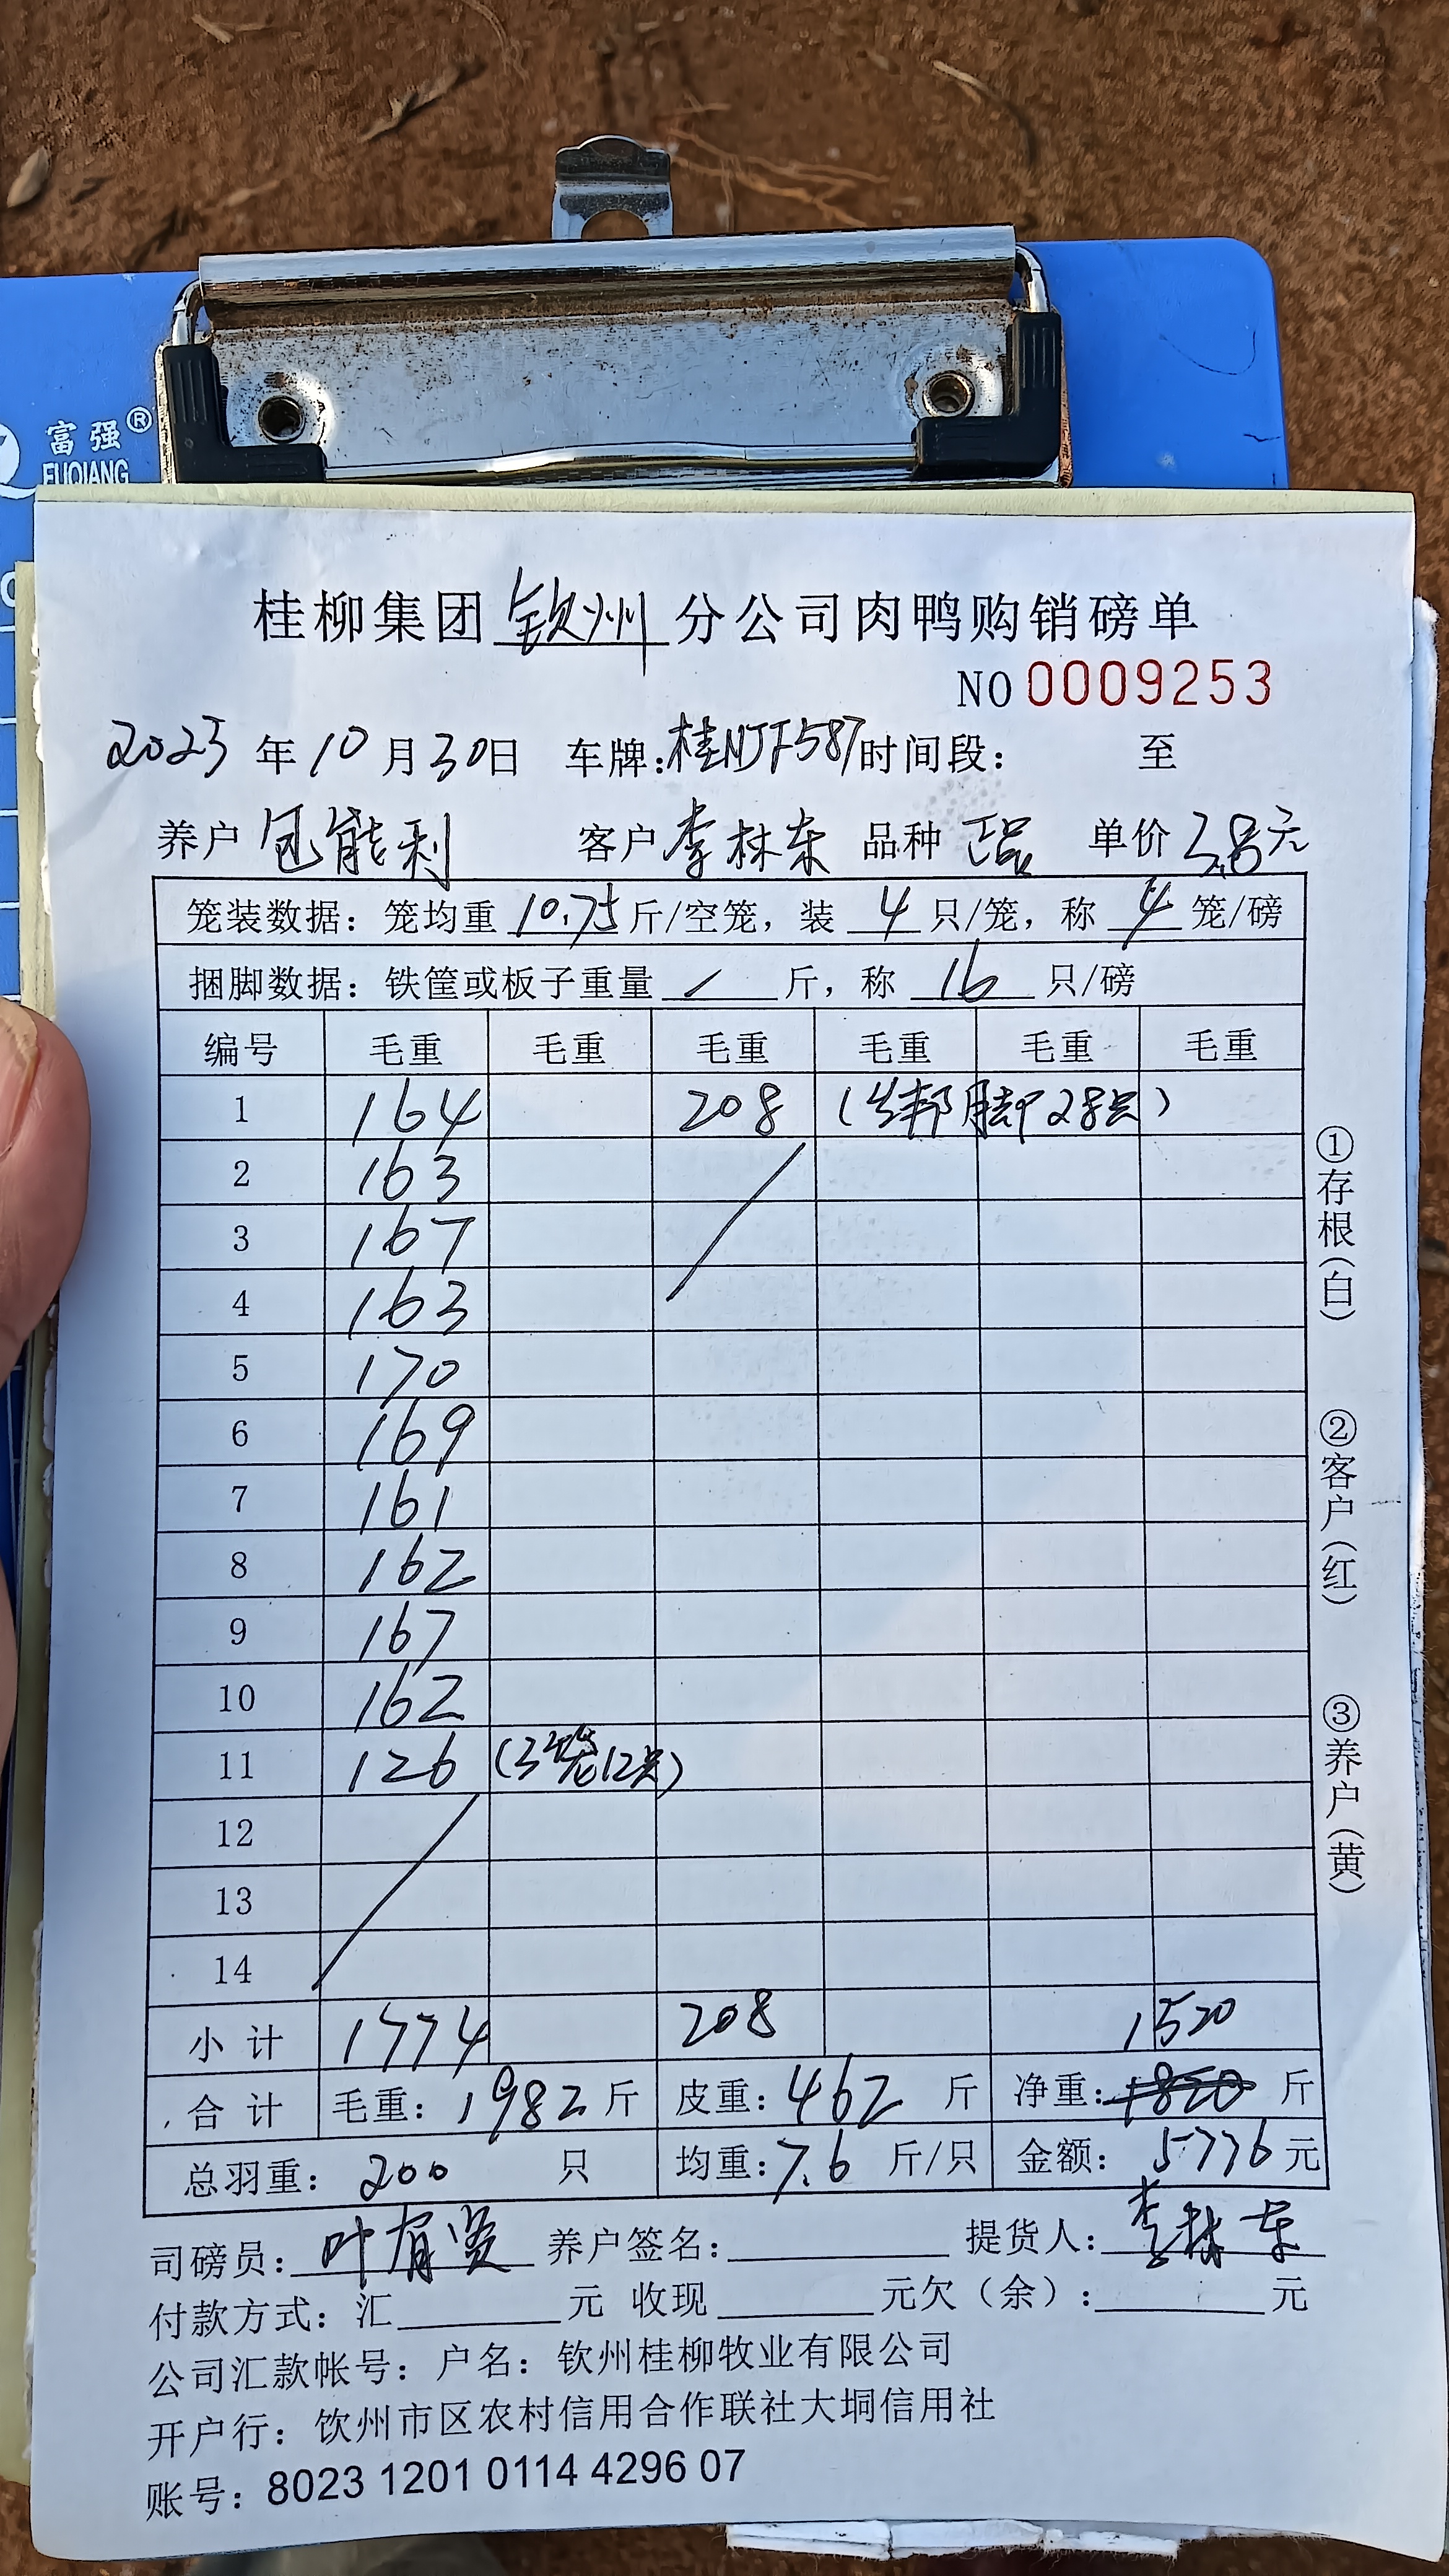 富强®
FUQIANG
桂柳集团钦州分公司肉鸭购销磅单
NO 0009253
2023年10月30日 车牌:桂NJF587时间段: 至
养户 包能利 客户 李林东 品种 正品 单价 3.8元
笼装数据: 笼均重 10.75 斤/空笼, 装 4 只/笼, 称 4 笼/磅
捆脚数据: 铁筐或板子重量 / 斤, 称 16 只/磅
编号 毛重 毛重 毛重 毛重 毛重 毛重
1 164 208 (邦脚28只)
2 163
3 167
4 163
5 170
6 169
7 161
8 162
9 167
10 162
11 126 (3笼12只)
12
13
14
小计 1774 208 1520
合计 毛重: 1982 斤 皮重: 462 斤 净重: 1820 斤
总羽重: 200 只 均重: 7.6 斤/只 金额: 5776 元
司磅员: 叶有贤 养户签名: 提货人: 李林东
付款方式: 汇 元 收现 元欠(余): 元
公司汇款帐号: 户名: 钦州桂柳牧业有限公司
开户行: 钦州市区农村信用合作联社大垌信用社
账号: 8023 1201 0114 4296 07
①存根(白)
②客户(红)
③养户(黄)